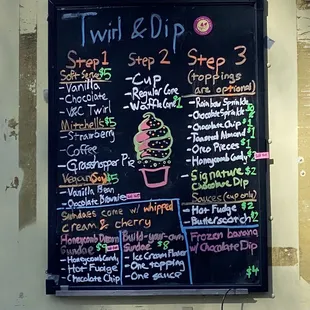 Twirl & Dip
Step 1
Soft Serve $5
- Vanilla
- Chocolate
- V&C Twirl
Mitchell's $5
- Strawberry
- Coffee
- Grasshopper Pie
Vegan Soy $5
- Vanilla Bean
- Chocolate Brownie
Step 2
- Cup
- Regular Cone
- Waffle Cone $1
Step 3
(toppings
are optional)
- Rainbow Sprinkle
- Chocolate Sprinkle
- Chocolate Chip $1
- Toasted Almond $1
- Oreo Pieces $1
- Honeycomb Candy
Signature $2
Chocolate Dip
Sauces (cup only)
- Hot Fudge $2
- Butterscotch
Sundaes come w/ whipped
cream & cherry
Honeycomb
Sundae $9
- Honeycomb Candy
- Hot Fudge
- Chocolate Chip
Build-your-own
Sundae $8
- Ice Cream Flavor
- One topping
- One sauce
Frozen banana
w/ Chocolate Dip
$4